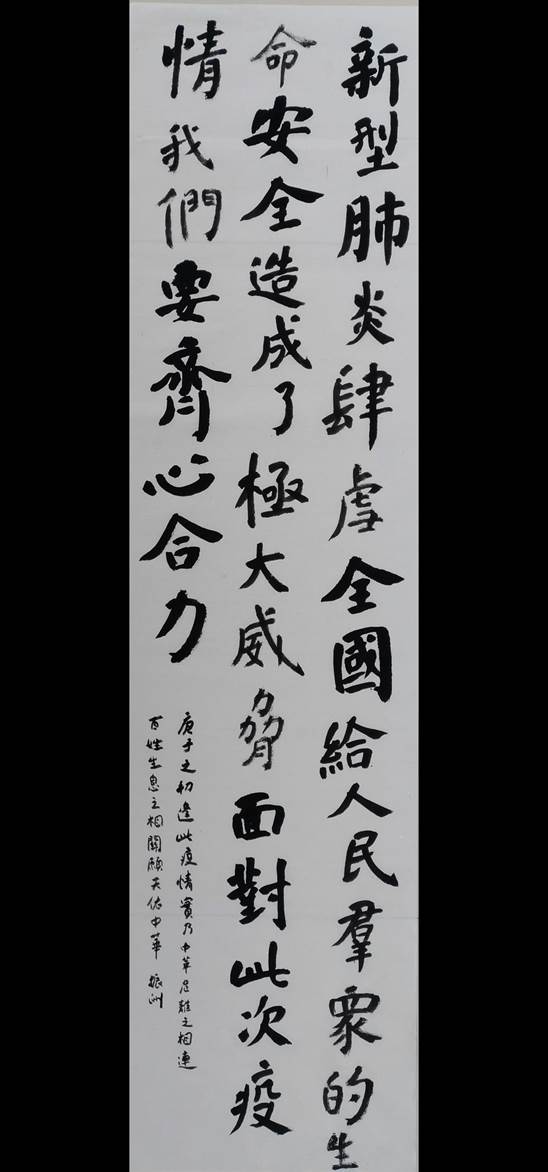 新型肺炎肆虐全國給人民羣眾的生
命安全造成了極大威脅面對此次疫
情我們要齊心合力
庚子之初逢此疫情實乃中華危難之相連
百姓生息之相關願天佑中華 振洲